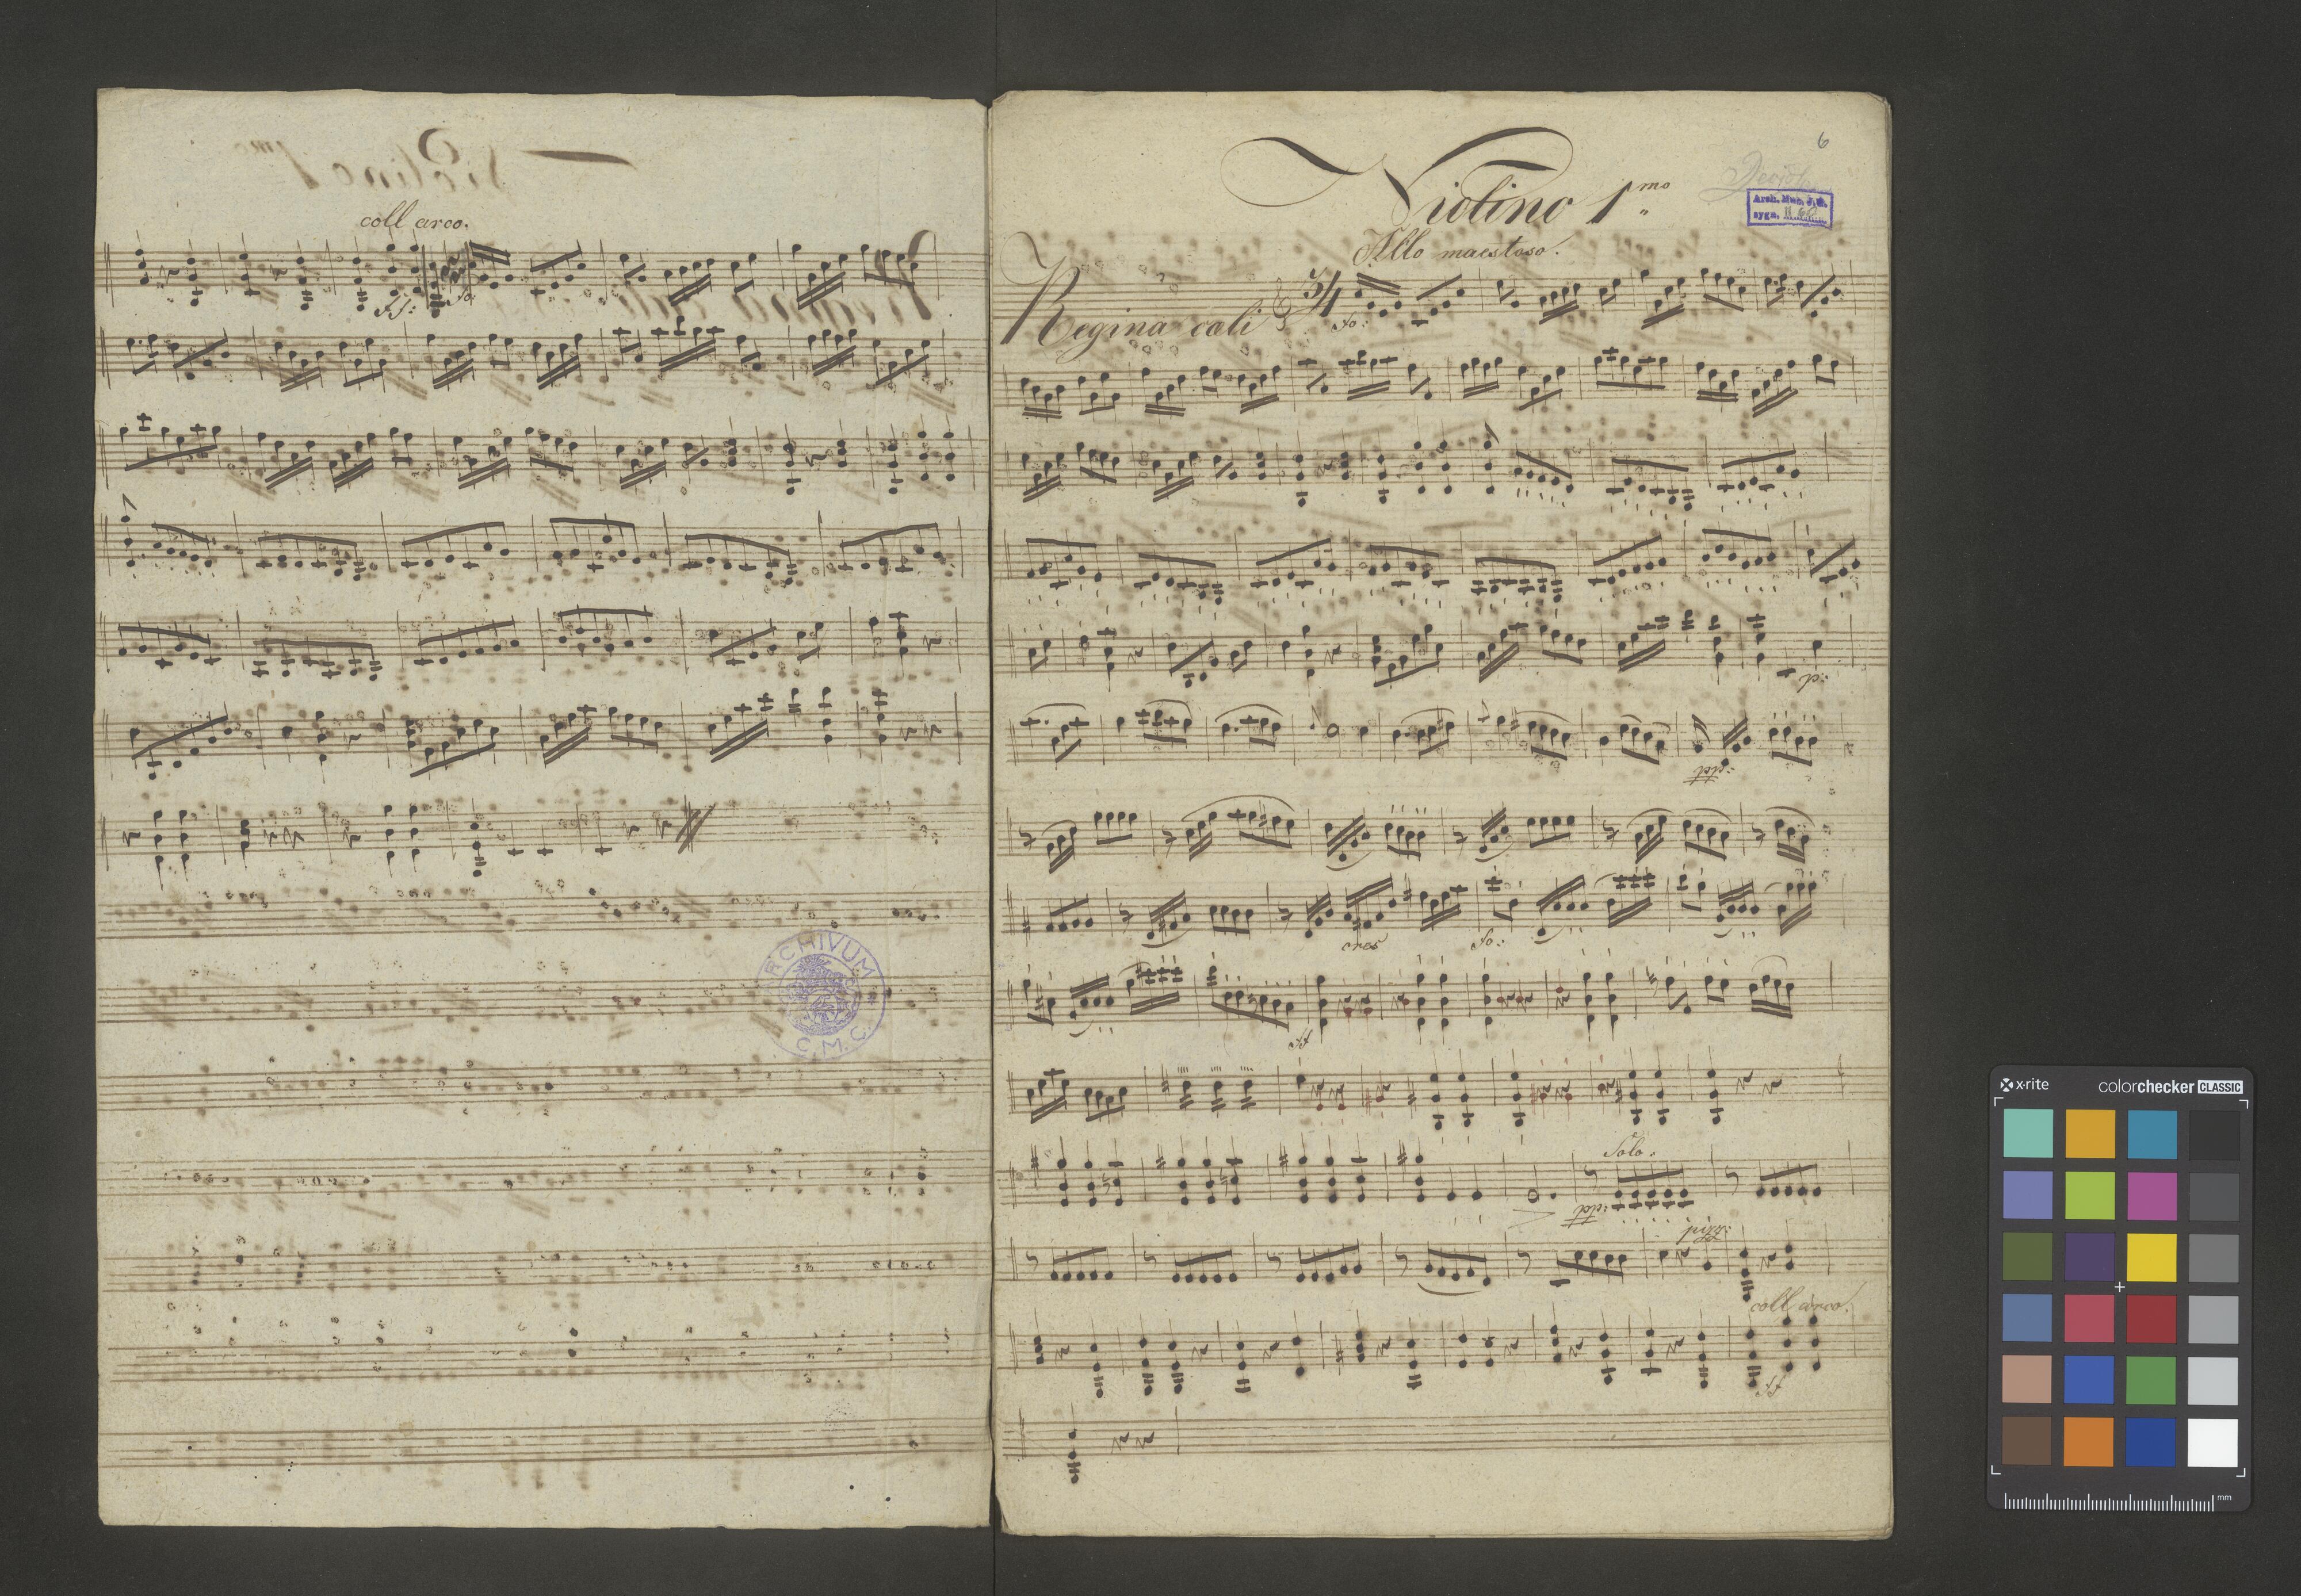 coll arco.
ff:
fo:
ARCHIVUM
C.M.C.
6
Violino 1mo
Arch. Muz. J.G.
sygn.
Allo maestoso.
Regina cæli
3/4
fo:
p:
pp:
cres
fo:
ff
Solo.
pp:
pizz:
coll arco.
ff
x-rite
colorchecker CLASSIC
mm